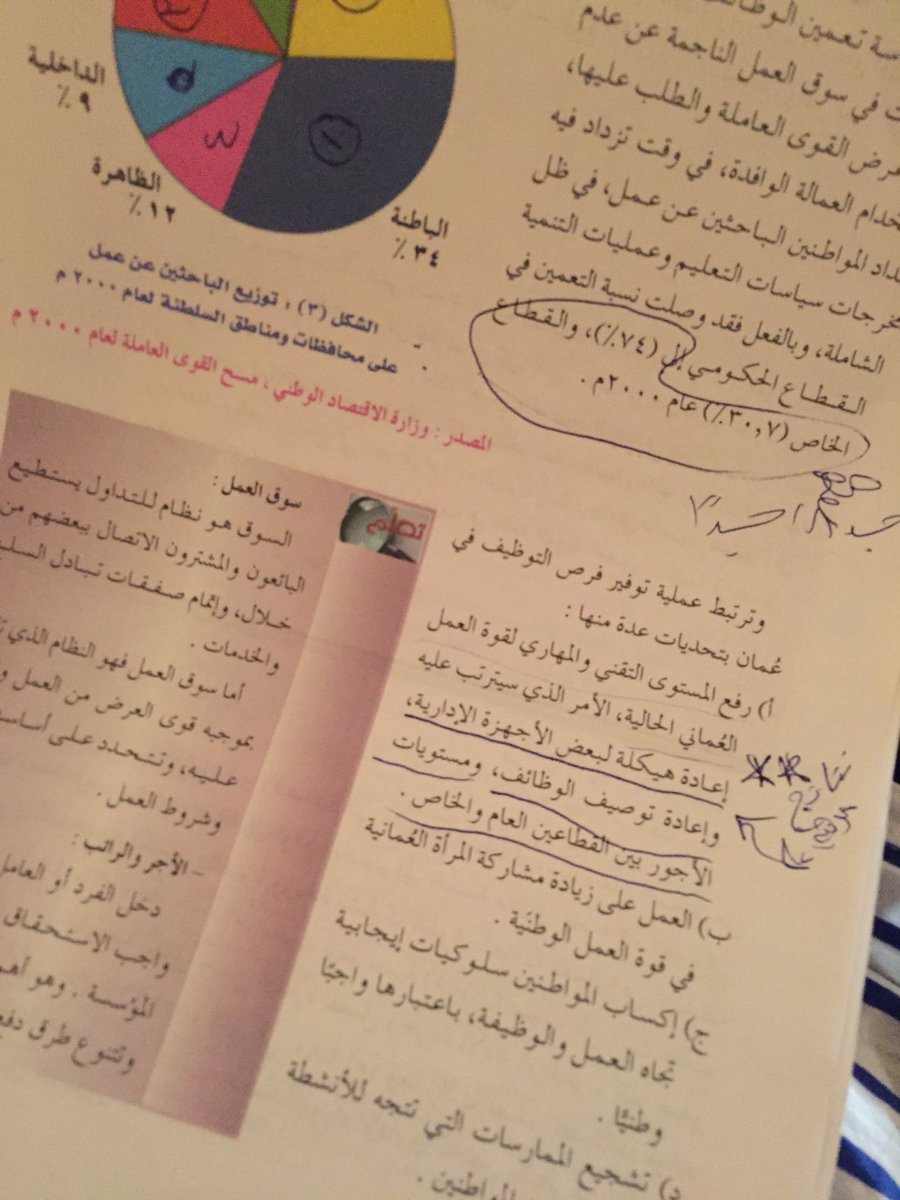 سة تعمين
في سوق العمل الناجمة عن عدم
القوى العاملة والطلب عليها،
العمالة الوافدة، في وقت تزداد فيه
المواطنين الباحثين عن عمل، في ظل
سياسات التعليم وعمليات التنمية
الشاملة، وبالفعل فقد وصلت نسبة التعمين في
القطاع الحكومي إلى (٧٤٪)، والقطاع
الخاص (٣٠,٧٪) عام ٢٠٠٠م .
وترتبط عملية توفير فرص التوظيف في
عُمان بتحديات عدة منها :
أ) رفع المستوى التقني والمهاري لقوة العمل
العُماني الحالية، الأمر الذي سيترتب عليه
إعادة هيكلة لبعض الأجهزة الإدارية،
وإعادة توصيف الوظائف، ومستويات
الأجور بين القطاعين العام والخاص .
ب) العمل على زيادة مشاركة المرأة العُمانية
في قوة العمل الوطنّية .
ج) إكساب المواطنين سلوكيات إيجابية
تجاه العمل والوظيفة، باعتبارها واجبًا
وطنيًّا .
د) تشجيع الممارسات التي تتجه للأنشطة
المواطنين .
الداخلية
٩ ٪
الظاهرة
١٢ ٪
الباطنة
٣٤ ٪
الشكل (٣) : توزيع الباحثين عن عمل
على محافظات ومناطق السلطنة لعام ٢٠٠٠ م
المصدر : وزارة الاقتصاد الوطني ، مسح القوى العاملة لعام ٢٠٠٠ م
تعلّم
سوق العمل :
السوق هو نظام للتداول يستطيع
البائعون والمشترون الاتصال ببعضهم من
خلال، وإتمام صفقات تبادل
والخدمات .
أما سوق العمل فهو النظام الذي
بموجبه قوى العرض من العمل
عليه، وتتحدد على
وشروط العمل .
– الأجر والراتب :
دخل الفرد أو العامل
واجب الاستحقاق
المؤسسة . وهو
وتتنوع طرق